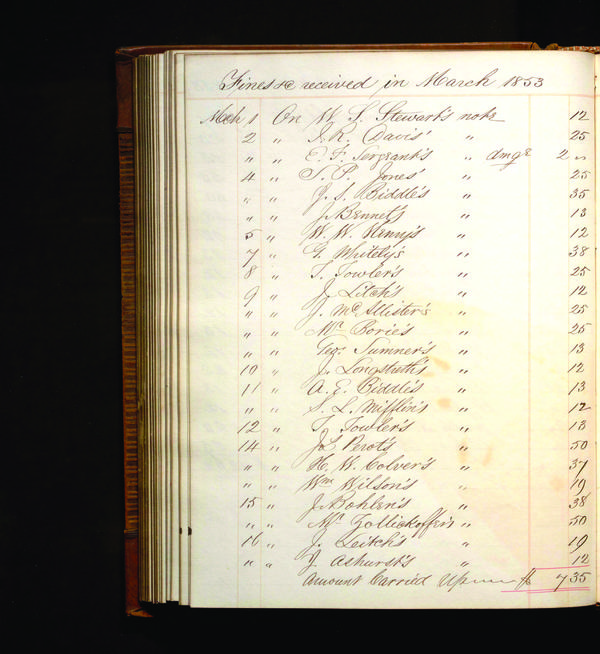 Fines &c received in March 1853
Mch 1 On W. S. Stewart's note 12
2 " J. R. Davis' " 25
" " E. F. Sergeant's " dmge 2 "
4 " S. P. Jones' " 25
" " J. S. Biddle's " 35
" " J. Bennet's " 13
5 " W. W. Henry's " 12
7 " G. Whitely's " 38
8 " T. Fowler's " 25
9 " J. Litch's " 12
" " J. McAllister's " 25
" " Mr Borie's " 25
" " Geo: Sumner's " 13
10 " J. Longstreth's " 12
11 " A. E. Biddle's " 13
" " S. L. Mifflin's " 12
12 " T. Fowler's " 13
14 " J L Perot's " 50
" " H. W. Colver's " 37
" " Wm Wilson's " 19
15 " J. Bohlen's " 38
" " Mr Zollickoffer's " 50
16 " J. Leitch's " 19
" " J. Ashurst's " 12
Amount Carried Up $ 7 35